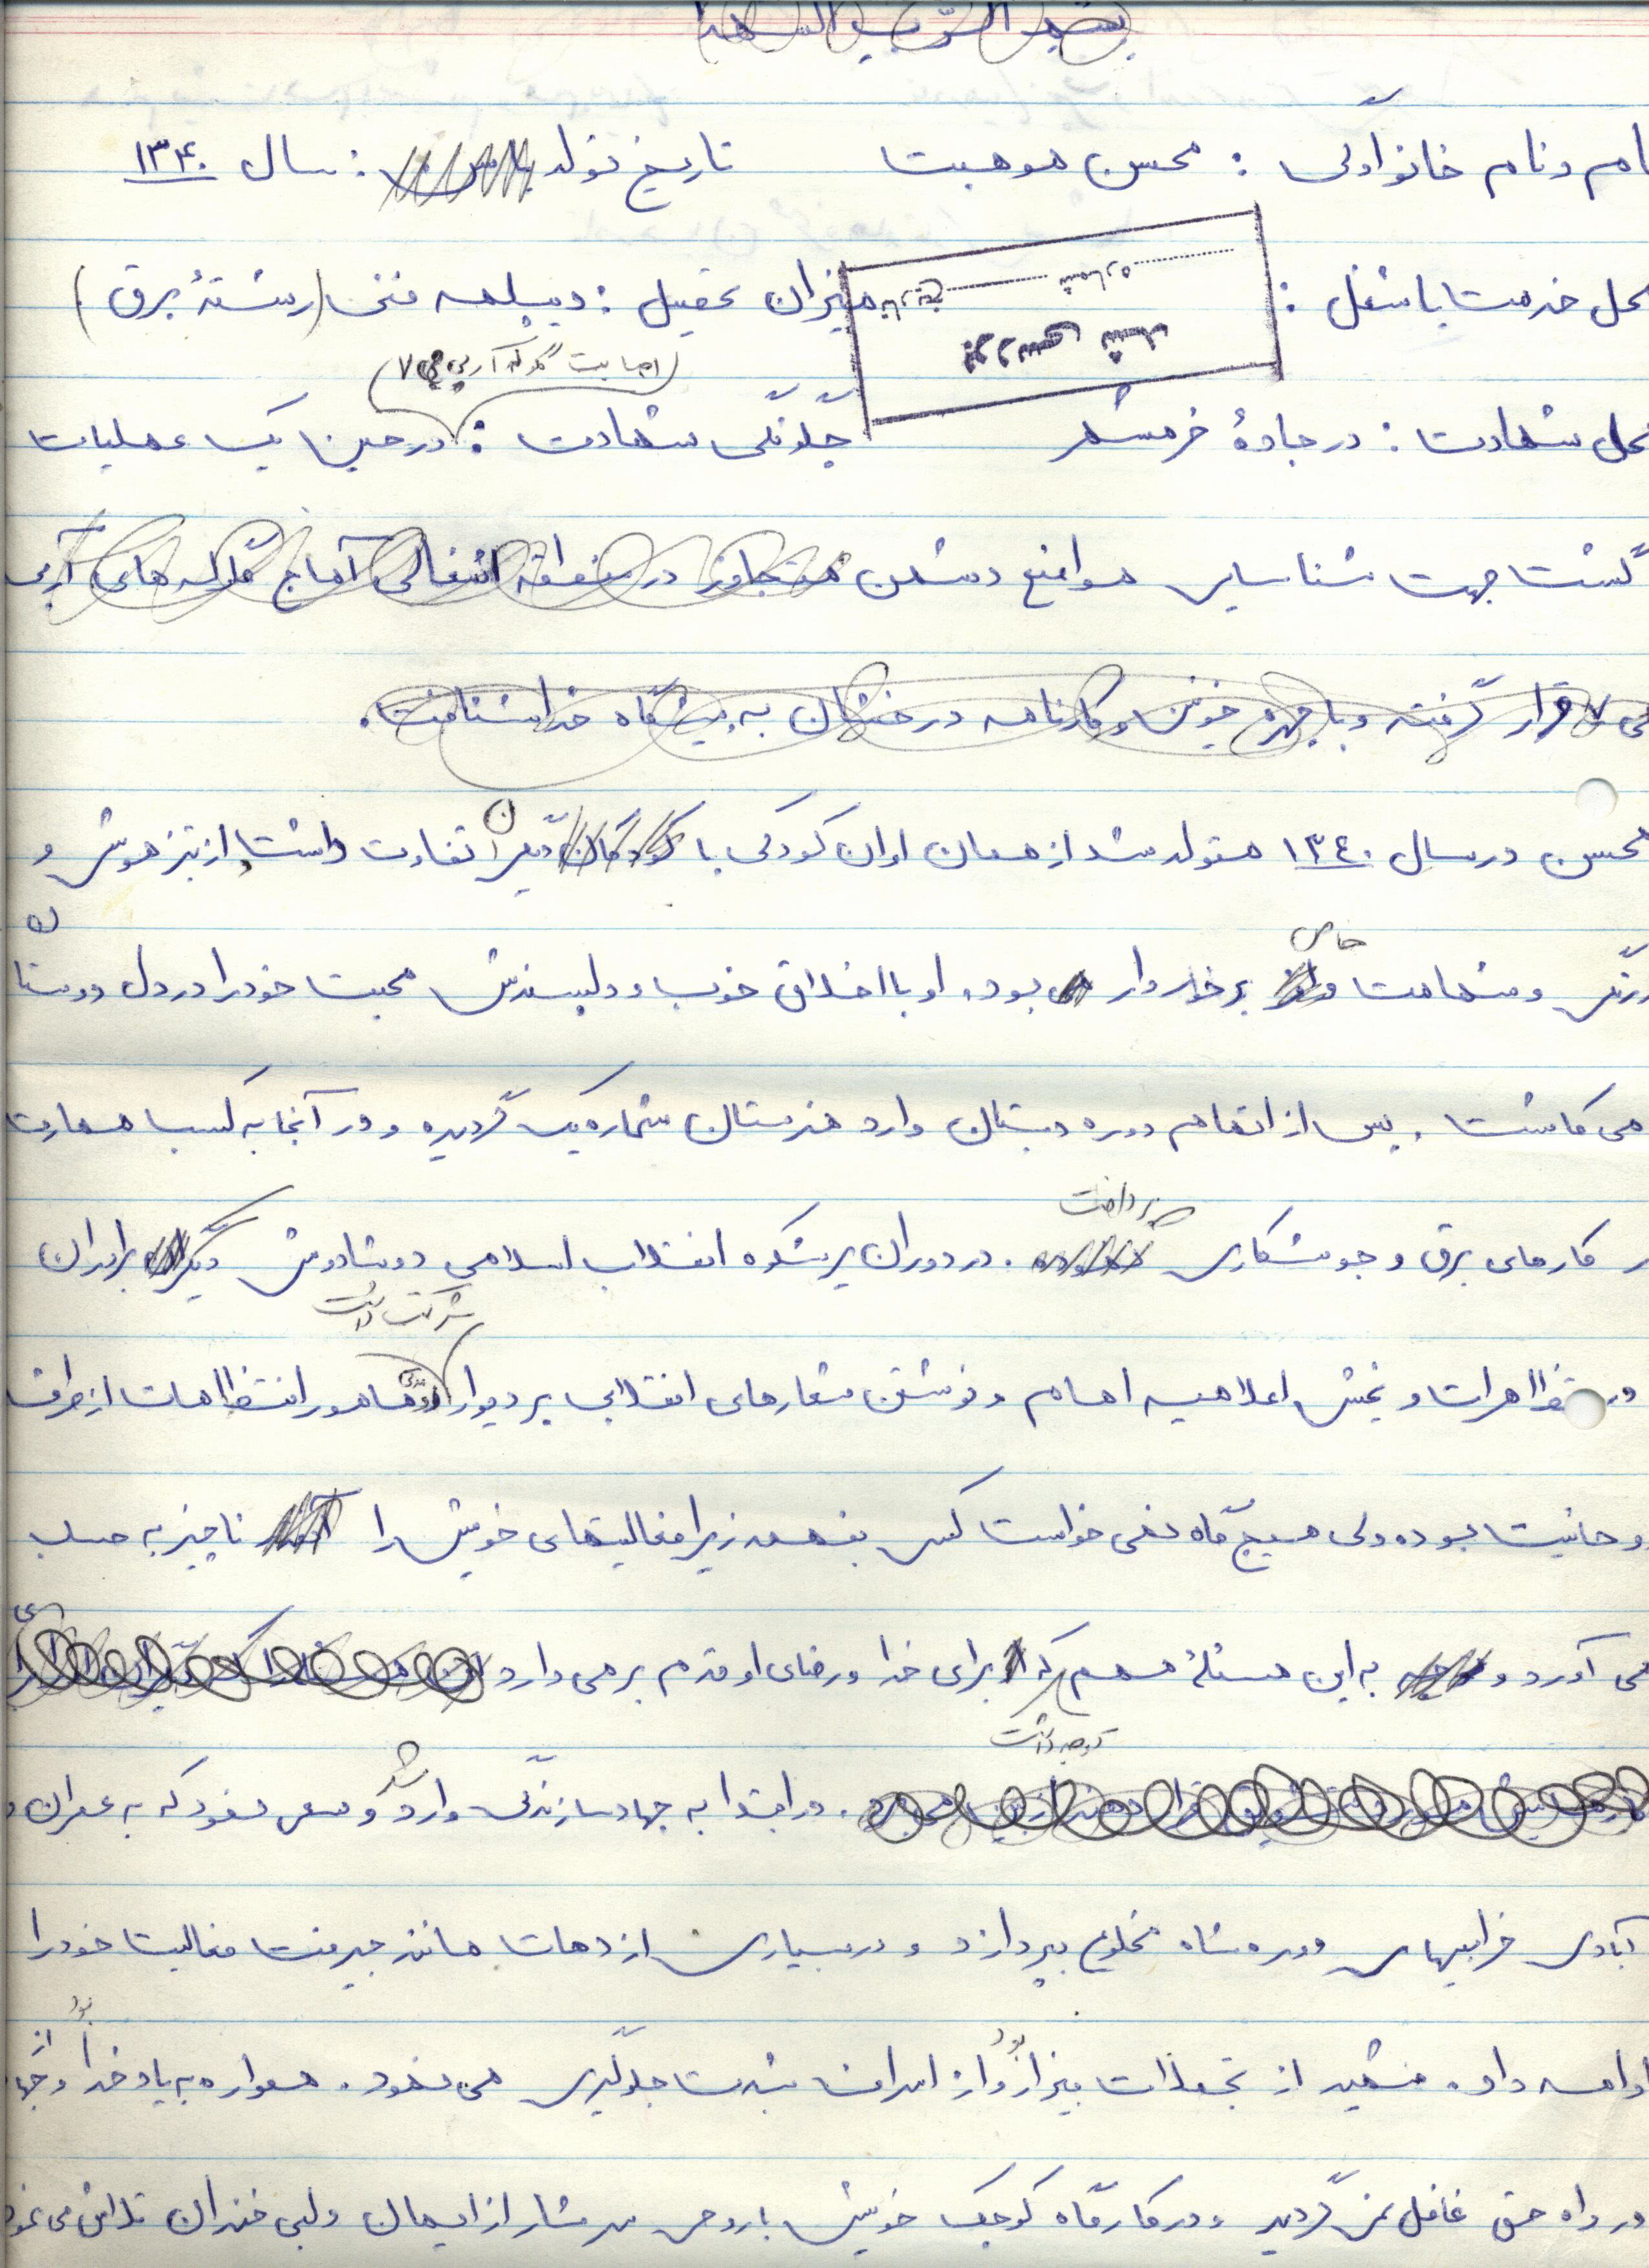 بسم رب الشهدا
نام و نام خانوادگی : محسن موهبت تاریخ تولد : سال ۱۳۴۰
محل خدمت یا شغل : میزان تحصیل : دیپلمه فنی (رشتهٔ برق)
شماره تاریخ
بررسی شد
(اصابت گلوله آرپی جی ۷)
محل شهادت : در جادهٔ خرمشهر چگونگی شهادت : در حین یک عملیات
گشت جهت شناسایی مواضع دشمن متجاوز در منطقه اشغالی آماج گلوله های آرپی
جی ۷ قرار گرفته و با چهره خونین و کارنامه درخشان به پیشگاه خدا شتافت.
محسن در سال ۱۳۴۰ متولد شد از همان اوان کودکی با کودکان دیگران تفاوت داشت, از تیزهوشی و
زرنگی و شهامت خاصی برخوردار بود. او با اخلاق خوب و دلپسندش محبت خود را در دل دوستان
می کاشت. پس از اتمام دوره دبستان وارد هنرستان شماره یک گردیده و در آنجا به کسب مهارت
در کارهای برق و جوشکاری پرداخت. در دوران پرشکوه انقلاب اسلامی دوشادوش دیگر برادران
در تظاهرات و پخش اعلامیه امام و نوشتن شعارهای انقلابی بر دیوارها شرکت داشت مدتی مامور انتظامات از طرف
روحانیت بوده ولی هیچ گاه نمی خواست کسی بفهمد زیرا فعالیتهای خویش را ناچیز به حساب
می آورد و به این مسئلهٔ مهم که برای خدا و رضای او قدم برمی دارد
توجه داشت. در ابتدا به جهاد سازندگی وارد شد و سعی نمود که به عمران و
آبادی خرابیهای دوره شاه مخلوع بپردازد و در بسیاری از دهات مانند جیرفت فعالیت خود را
ادامه داد. شهید از تجملات بیزار بود و از اسراف بشدت جلوگیری می نمود. همواره به یاد خدا بود و از جهاد
در راه حق غافل نمی گردید و در کارگاه کوچک خویش با روحی سرشار از ایمان و لبی خندان تلاش می نمود